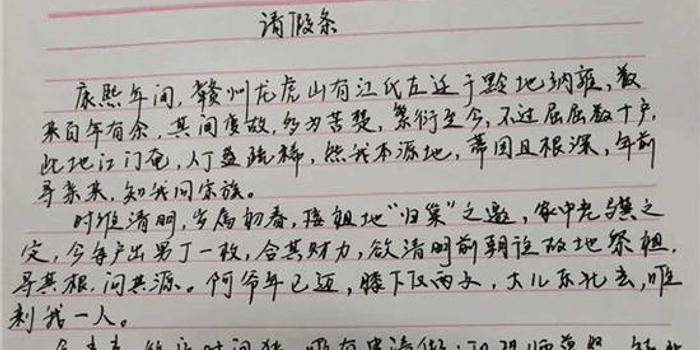 请假条
康熙年间,赣州龙虎山有江氏左迁于黔地纳雍,数
来百年有余,其间变故,多为苦楚,繁衍至今,不过屈屈数十户,
此地江门奄,人丁益疏稀,然我本源地,蒂固且根深,年前
寻亲来,知我同宗族。
时维清明,岁属初春,接祖地“归巢”之邀,家中老
定,今每户出男丁一枚,合其财力,欲清明前朝往故地祭祖,
寻其根,问其源。阿爷年已迈,膝下仅两子,大儿东北去,唯
剩我一人。